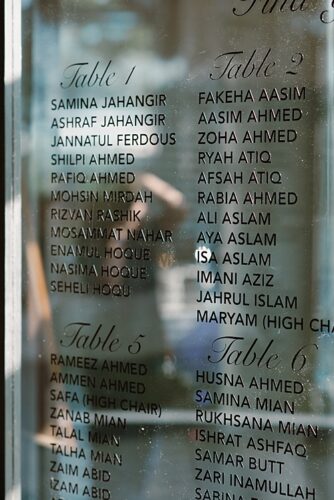 Find
Table 1
SAMINA JAHANGIR
ASHRAF JAHANGIR
JANNATUL FERDOUS
SHILPI AHMED
RAFIQ AHMED
MOHSIN MIRDAH
RIZVAN RASHIK
MOSAMMAT NAHAR
ENAMUL HOQUE
NASIMA HOQUE
SEHELI HOQU
Table 2
FAKEHA AASIM
AASIM AHMED
ZOHA AHMED
RYAH ATIQ
AFSAH ATIQ
RABIA AHMED
ALI ASLAM
AYA ASLAM
ISA ASLAM
IMANI AZIZ
JAHRUL ISLAM
MARYAM (HIGH CHA
Table 5
RAMEEZ AHMED
AMMEN AHMED
SAFA (HIGH CHAIR)
ZANAB MIAN
TALAL MIAN
TALHA MIAN
ZAIM ABID
IZAM ABID
Table 6
HUSNA AHMED
SAMINA MIAN
RUKHSANA MIAN
ISHRAT ASHFAQ
SAMAR BUTT
ZARI INAMULLAH